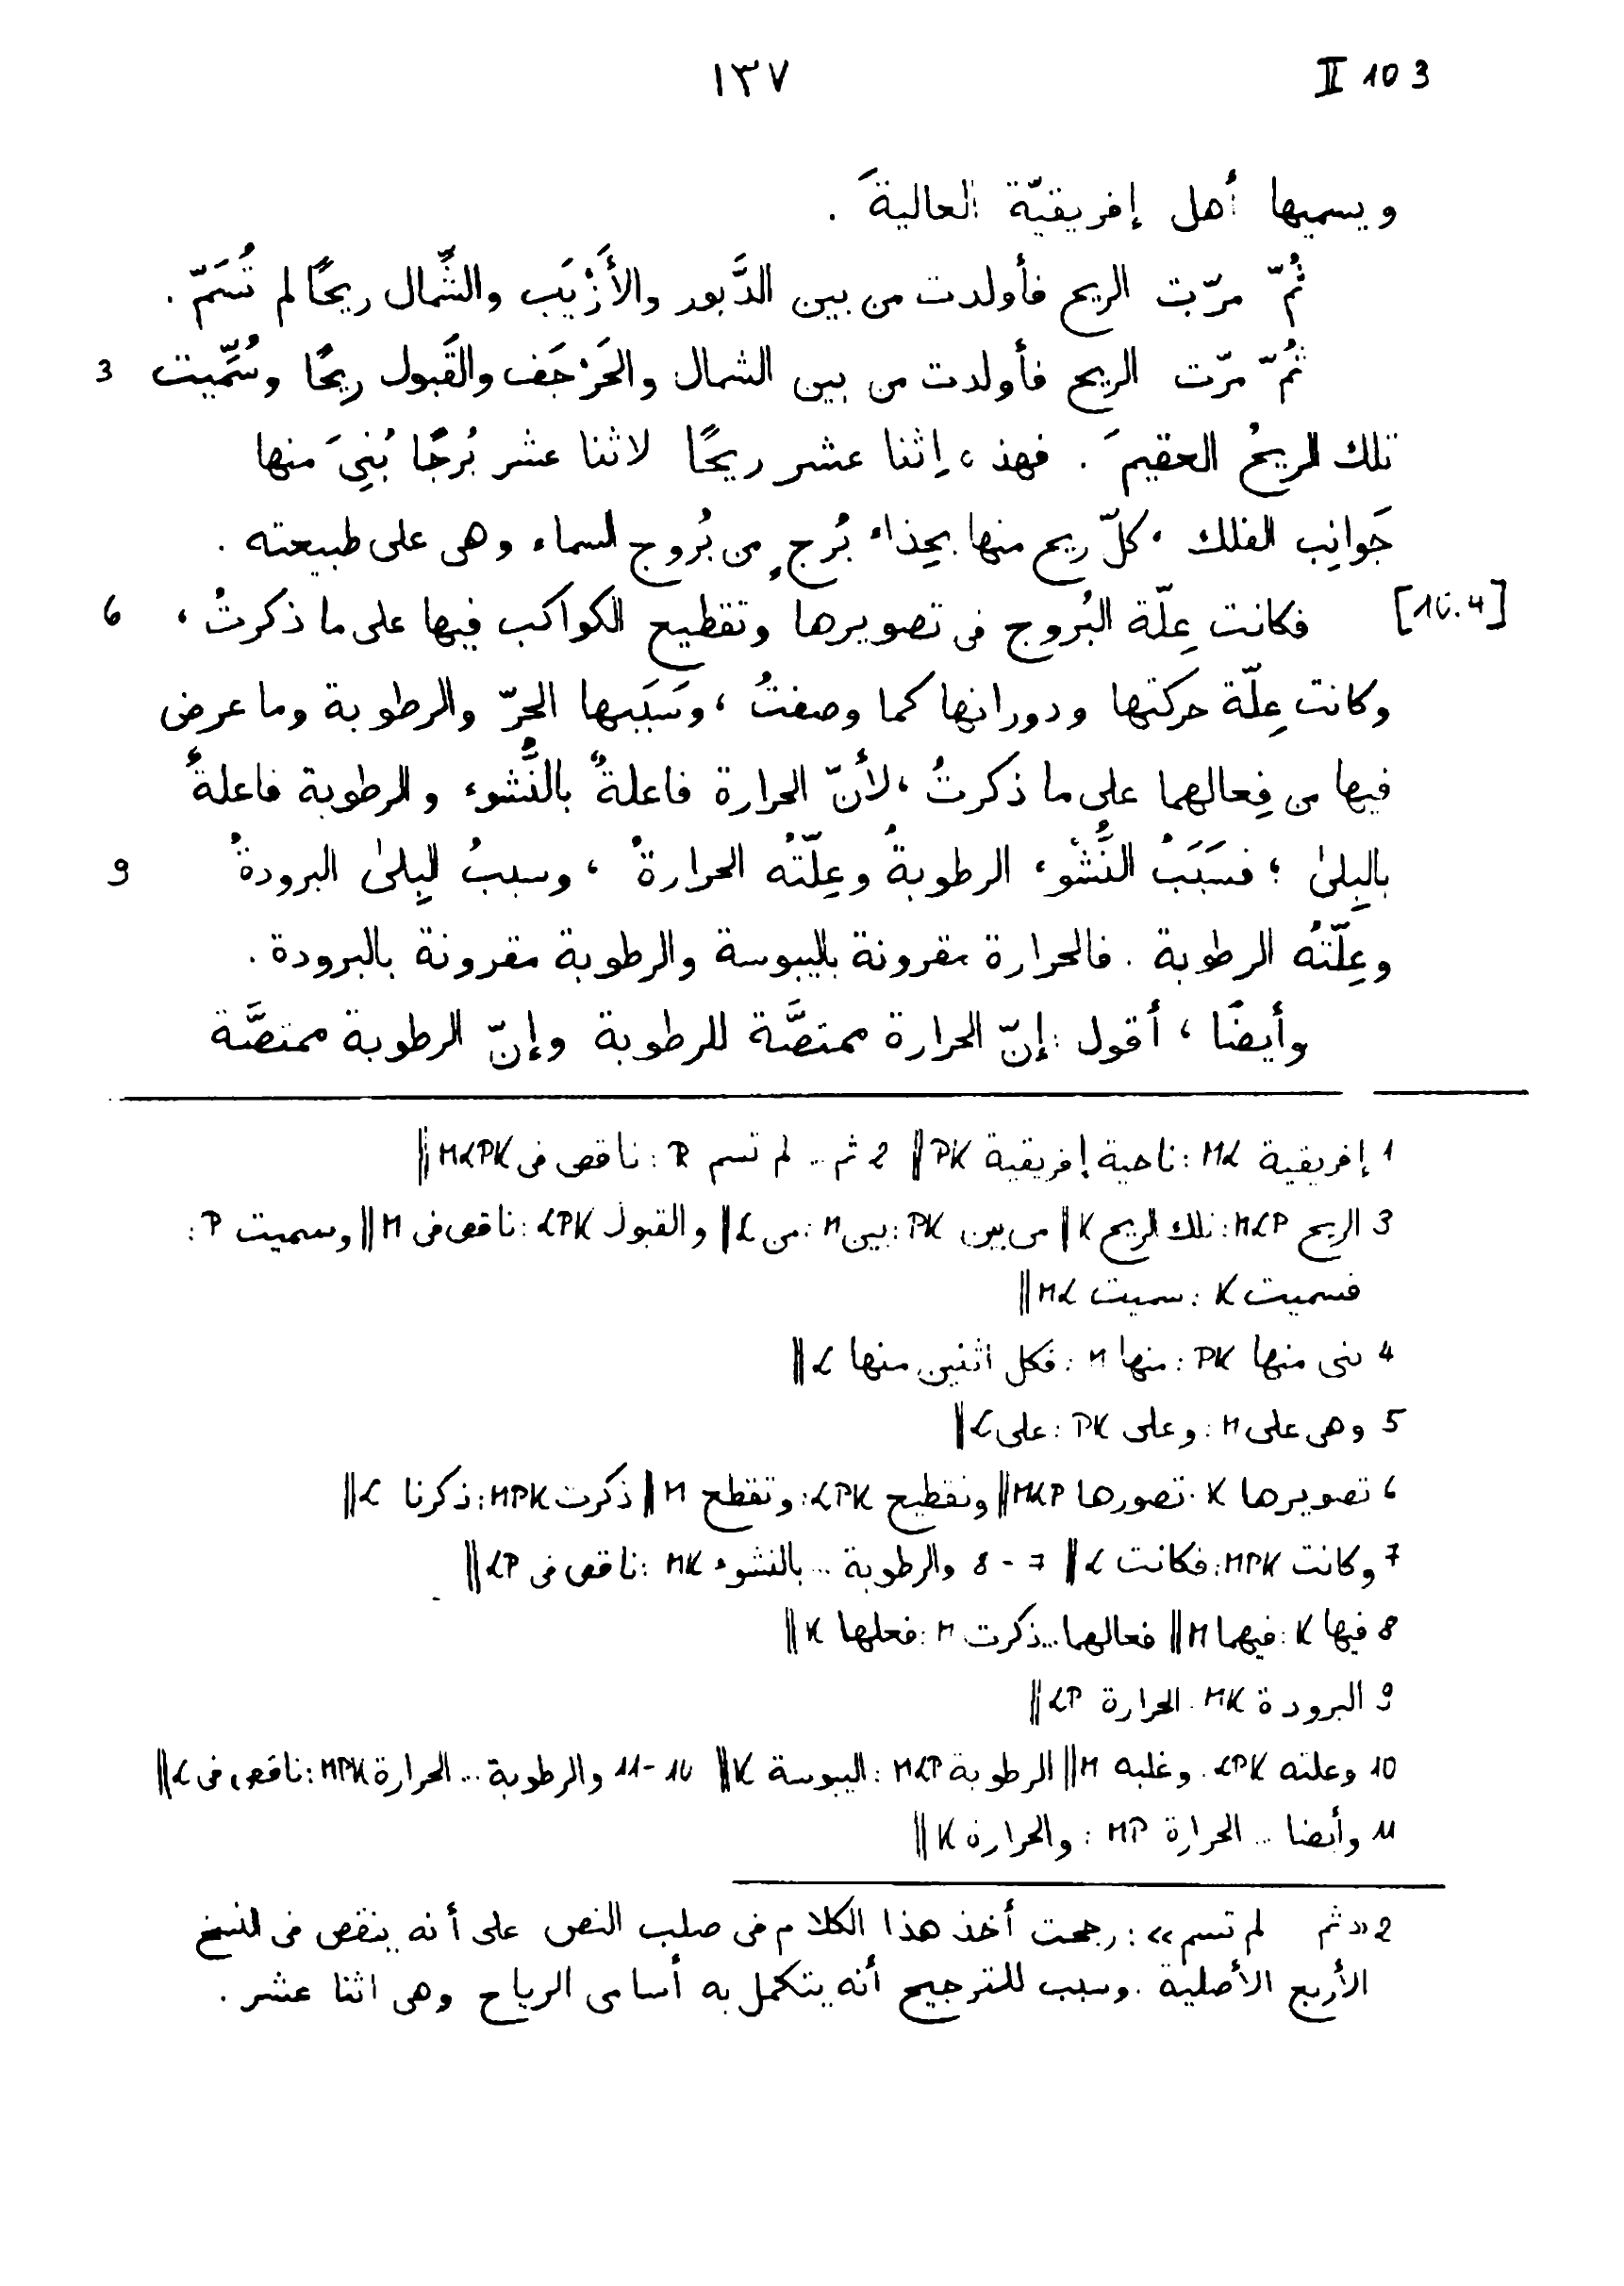 ١٣٧ II 103
ويسميها أهل إفريقيّة العاليةَ .
ثُمّ مرّت الريح فأولدت من بين الدَّبور والأَزْيَب والشِّمال ريحًا لم تُسَمّ .
ثُمّ مرّت الريح فأولدت من بين الشمال والحَرْجَف والقَبول رِيحًا وسُمِّيت 3
تلك الريحُ العقيمَ . فهذه اِثنا عشر ريحًا لاثنا عشر بُرجًا بُنِيَ منها
جَوانِب الفلك ، كلّ ريح منها بحِذاء بُرجٍ من بُروج السماء وهى على طبيعته .
[10.4] فكانت عِلّة البُروج فى تصويرها وتقطيع الكواكب فيها على ما ذكرتُ ، 6
وكانت عِلّة حركتها ودورانها كما وصفتُ ، وسَبَبها الحرّ والرطوبة وما عرض
فيها من فِعالهما على ما ذكرتُ ، لأنّ الحرارة فاعلةٌ بالنُّشوء والرطوبة فاعلةٌ
بالبِلىٰ ؛ فسَبَبُ النُّشْوء الرطوبةُ وعِلّتُه الحرارةُ ، وسببُ البِلىٰ البرودةُ 9
وعِلّتُه الرطوبة . فالحرارة مقرونة باليبوسة والرطوبة مقرونة بالبرودة .
وأيضًا ، أقول : إنّ الحرارة ممتصَّة للرطوبة وإنّ الرطوبة ممتصَّة
1 إفريقية ML : ناحية إفريقية PK || 2 ثم .. لم تسم R : ناقص فى MLPK ||
3 الريح MLP : تلك الريح K || من بين PK : بين M : من L || والقبول LPK : ناقص فى M || وسميت P :
فسميت K : سميت ML ||
4 بنى منها PK : منها M : فكل اثنين منها L ||
5 وهى على M : وعلى PK : على L ||
6 تصويرها K : تصورها MLP || وتقطيع LPK : وتقطع M || ذكرت MPK : ذكرنا L ||
7 وكانت MPK : فكانت L || 7 - 8 والرطوبة .. بالنشوء MK : ناقص فى LP ||
8 فيها K : فيهما M || فعالهما .. ذكرت M : فعلها K ||
9 البرودة MK : الحرارة LP ||
10 وعلته LPK : وغلبه M || الرطوبة MLP : اليبوسة K || 10-11 والرطوبة ... الحرارة MPK : ناقص فى L ||
11 وأيضا .. الحرارة MP : والحرارة K ||
2 «ثم لم تسم» : رجحت أخذ هذا الكلام فى صلب النص على أنه ينقص فى النسخ
الأربع الأصلية . وسبب للترجيح أنه يتكمل به أسامى الرياح وهى اثنا عشر .